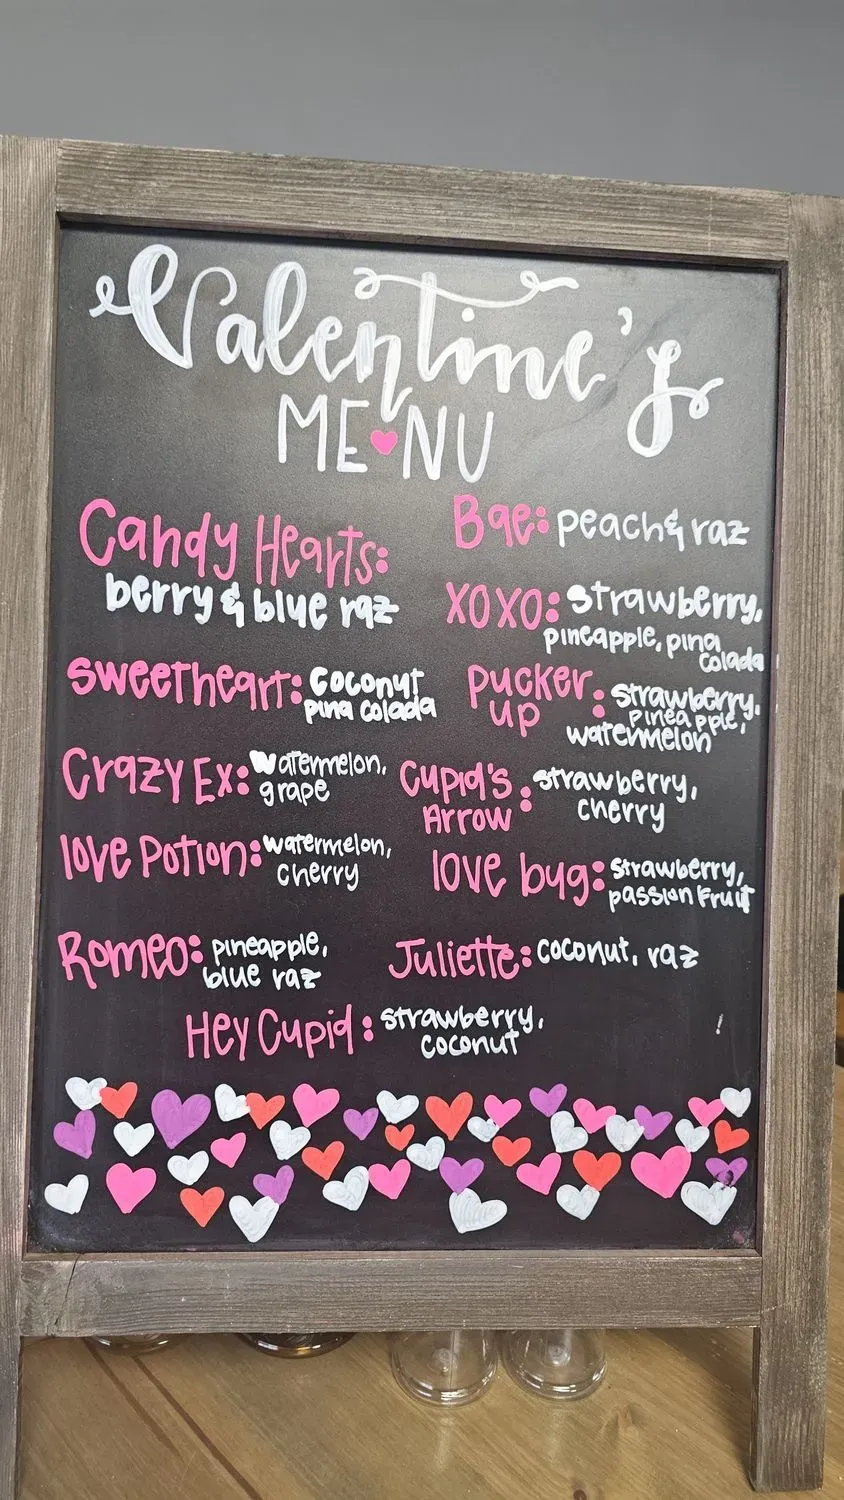 Valentine's
MENU
Candy Hearts:
berry & blue raz
Bae: peach & raz
XOXO: strawberry,
pineapple, pina
colada
Sweetheart: coconut
pina colada
Pucker up: strawberry,
pineapple,
watermelon
Crazy Ex: watermelon,
grape
Cupid's Arrow: strawberry,
cherry
love Potion: watermelon,
cherry
love bug: strawberry,
passion fruit
Romeo: pineapple,
blue raz
Juliette: coconut, raz
Hey Cupid: strawberry,
coconut